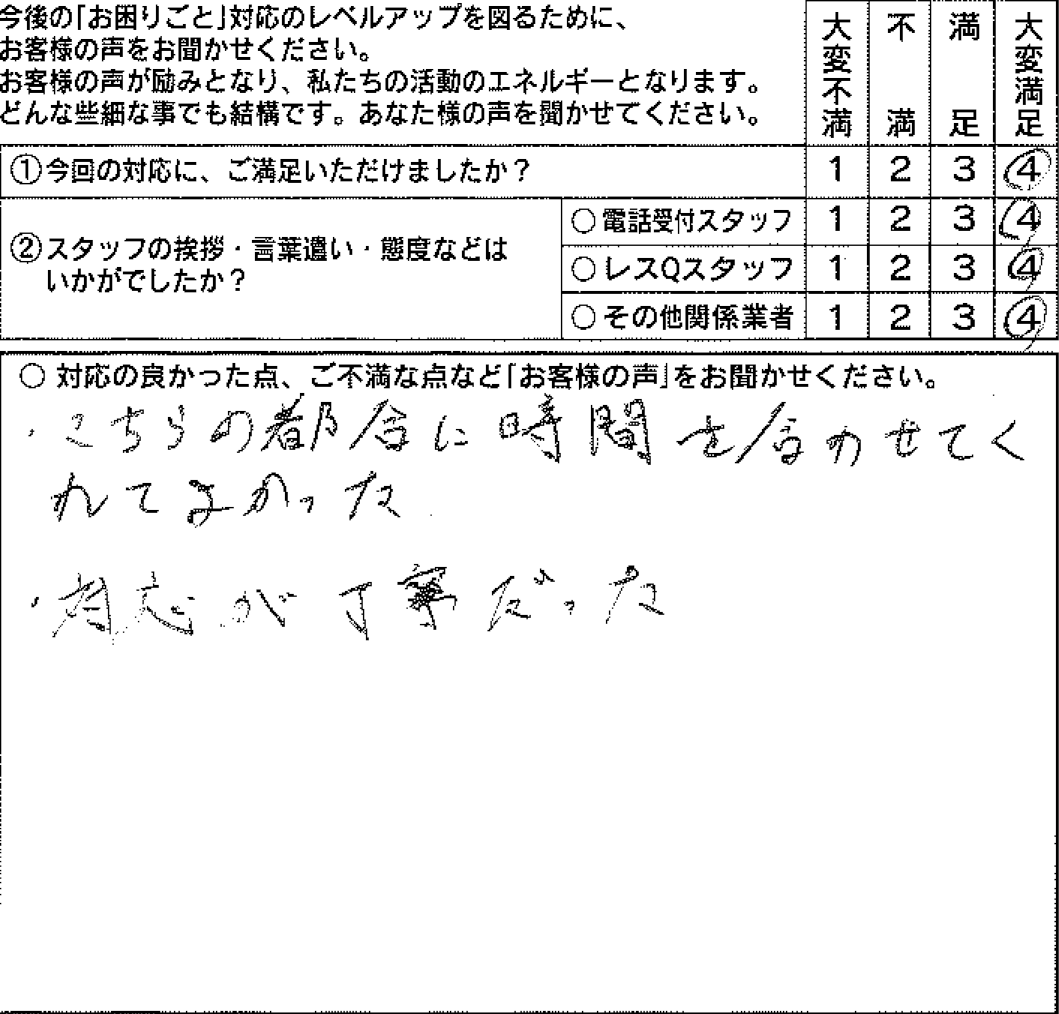 今後の｢お困りごと｣対応のレベルアップを図るために、
お客様の声をお聞かせください。
お客様の声が励みとなり、私たちの活動のエネルギーとなります。
どんな些細な事でも結構です。あなた様の声を聞かせてください。
大変不満 不満 満足 大変満足
①今回の対応に、ご満足いただけましたか？ 1 2 3 4
②スタッフの挨拶・言葉遣い・態度などは
いかがでしたか？
○電話受付スタッフ 1 2 3 4
○レスQスタッフ 1 2 3 4
○その他関係業者 1 2 3 4
○ 対応の良かった点、ご不満な点など｢お客様の声｣をお聞かせください。
・こちらの都合に時間を合わせてく
れてよかった
・対応が丁寧だった